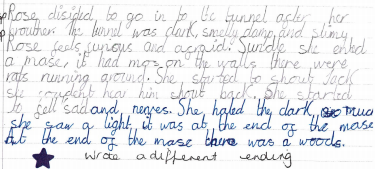 Rose disided to go in to the tunnel after her
brouther. The tunnel was dark, smelly, damp and slimy
Rose feels curious and afraid. Suddle she ented
a mase, it had mos on the walls there were
rats running around. She started to shout Jack
she couldent hear him shout back. She started
to fell sad and, nerves. She hated the dark so much
she saw a light, it was at the end of the mase
At the end of the mase there was a woods.
Write a different ending